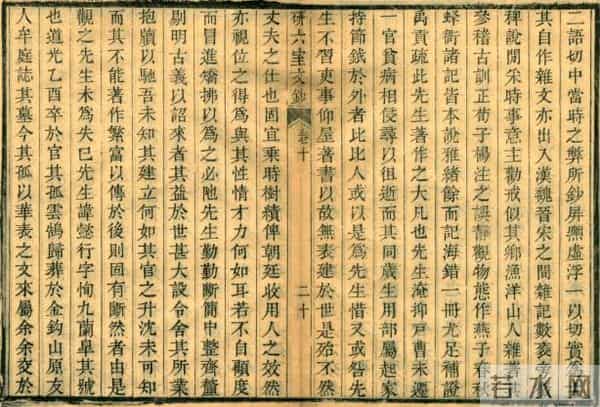 二語切中當時之弊所鈔屏虛浮一以切實為
其自作雜文亦出入漢魏晉宋之間雜記數
稗說閒采時事意主勸戒似其鄉漁洋山人雜著
參稽古訓正荀子楊注之誤靜觀物態作燕子春秋
蜂衙諸記皆本說雅緒餘而記海錯一冊尤足補證
禹貢疏此先生著作之大凡也先生淹抑戶曹未遷
一官貧病相侵尋以徂逝而其同歲生用部屬起家
持節鉞於外者比比人或以是為先生惜又或咎先
生不習吏事仰屋著書以故無表建於世是殆不然
研六室文鈔
卷十
二十
丈夫之仕也固宜乘時樹績俾朝廷收用人之效然
亦視位之得為與其性情才力何如耳若不自顧度
而冒進矯拂以為之必先生勤勤斷簡中整齊釐
剔明古義以詔來者其益於世甚大設令舍其所業
抱牘以馳吾未知其建立何如其官之升沈未可知
而其不能著作繁富以傳於後則固有斷然者由是
觀之先生未為失巳先生諱懿行字恂九蘭皋其號
也道光乙酉卒於官其孤雲鵠歸葬於金鉤山原友
人牟庭誌其墓今其孤以華表之文來屬余余交於
若水网